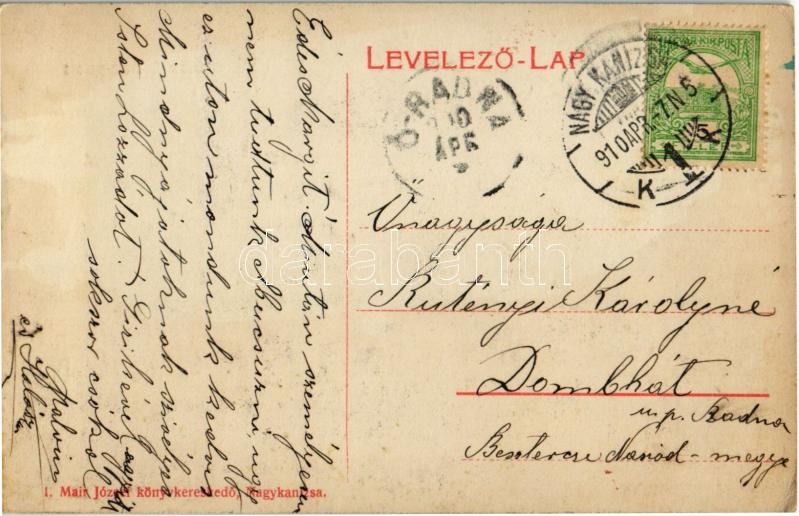 LEVELEZŐ-LAP
MAGYAR KIR. POSTA
NAGY KANIZSA
910 APR. -7. N 5
K 1 K
Ó-RADNA
910
APR
Édes Margit! Miután személyesen
nem tudtunk elbucsuzni, ugy
ez uton mondunk kedves
Mindnyájatoknak szívélyes
Isten hozzádot! Gizikével együtt
sokszor csókol
Kálvin
és
Őnagysága
Rutényi Károlyné
Dombhát
u. p. Radna
Besztercze Naszód-megye
1. Mair József könyvkereskedő, Nagykanizsa.
darabanth